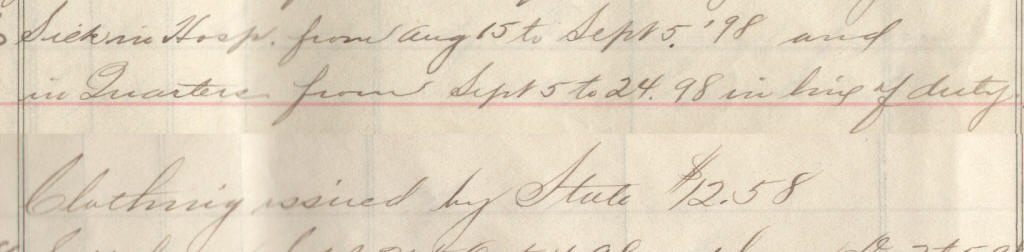 Sick in Hosp. from Aug 15 to Sept 5. '98 and
in Quarters from Sept 5 to 24. 98 in line of duty
Clothing issued by State $12.58